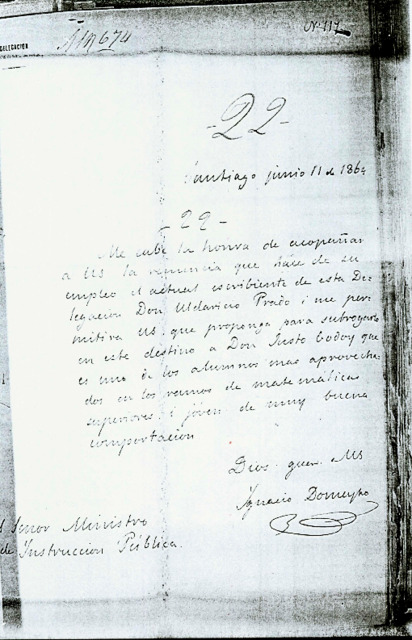 DELEGACION
Nº 117
-22-
Santiago junio 11 de 1864
-29-
Me cabe la honra de acopañar
a US la renuncia que hace de su
empleo el actual escribiente de esta De
legacion Don Uldaricio Prado i me per
mitirá US. que proponga para subrogarlo
en este destino a Don Justo Godoy que
es uno de los alumnos mas aprovecha
dos en los ramos de matemáticas
superiores i jóven de muy buena
comportacion
Dios gue. a US
Ignacio Domeyko
Señor Ministro
de Instruccion Pública.